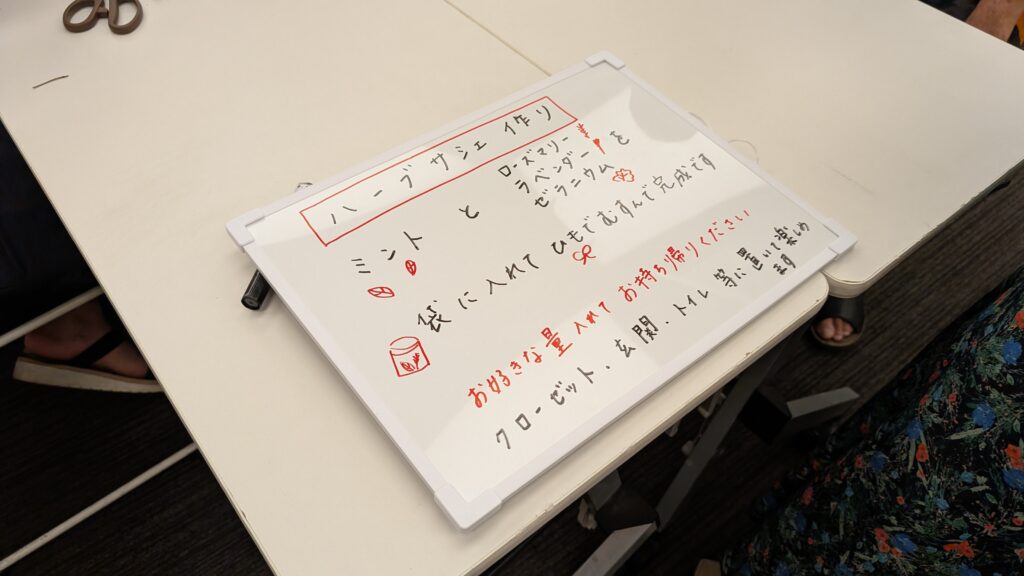 ハーブサシェ作り
ミントと
ローズマリー
ラベンダー
ゼラニウム
を
袋に入れてひもでむすんで完成です
お好きな量入れてお持ち帰りください
クローゼット、玄関、トイレ等に置いて楽しめ
ます